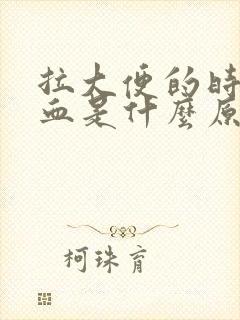 拉大便的时
血是什麼原
柯珠育